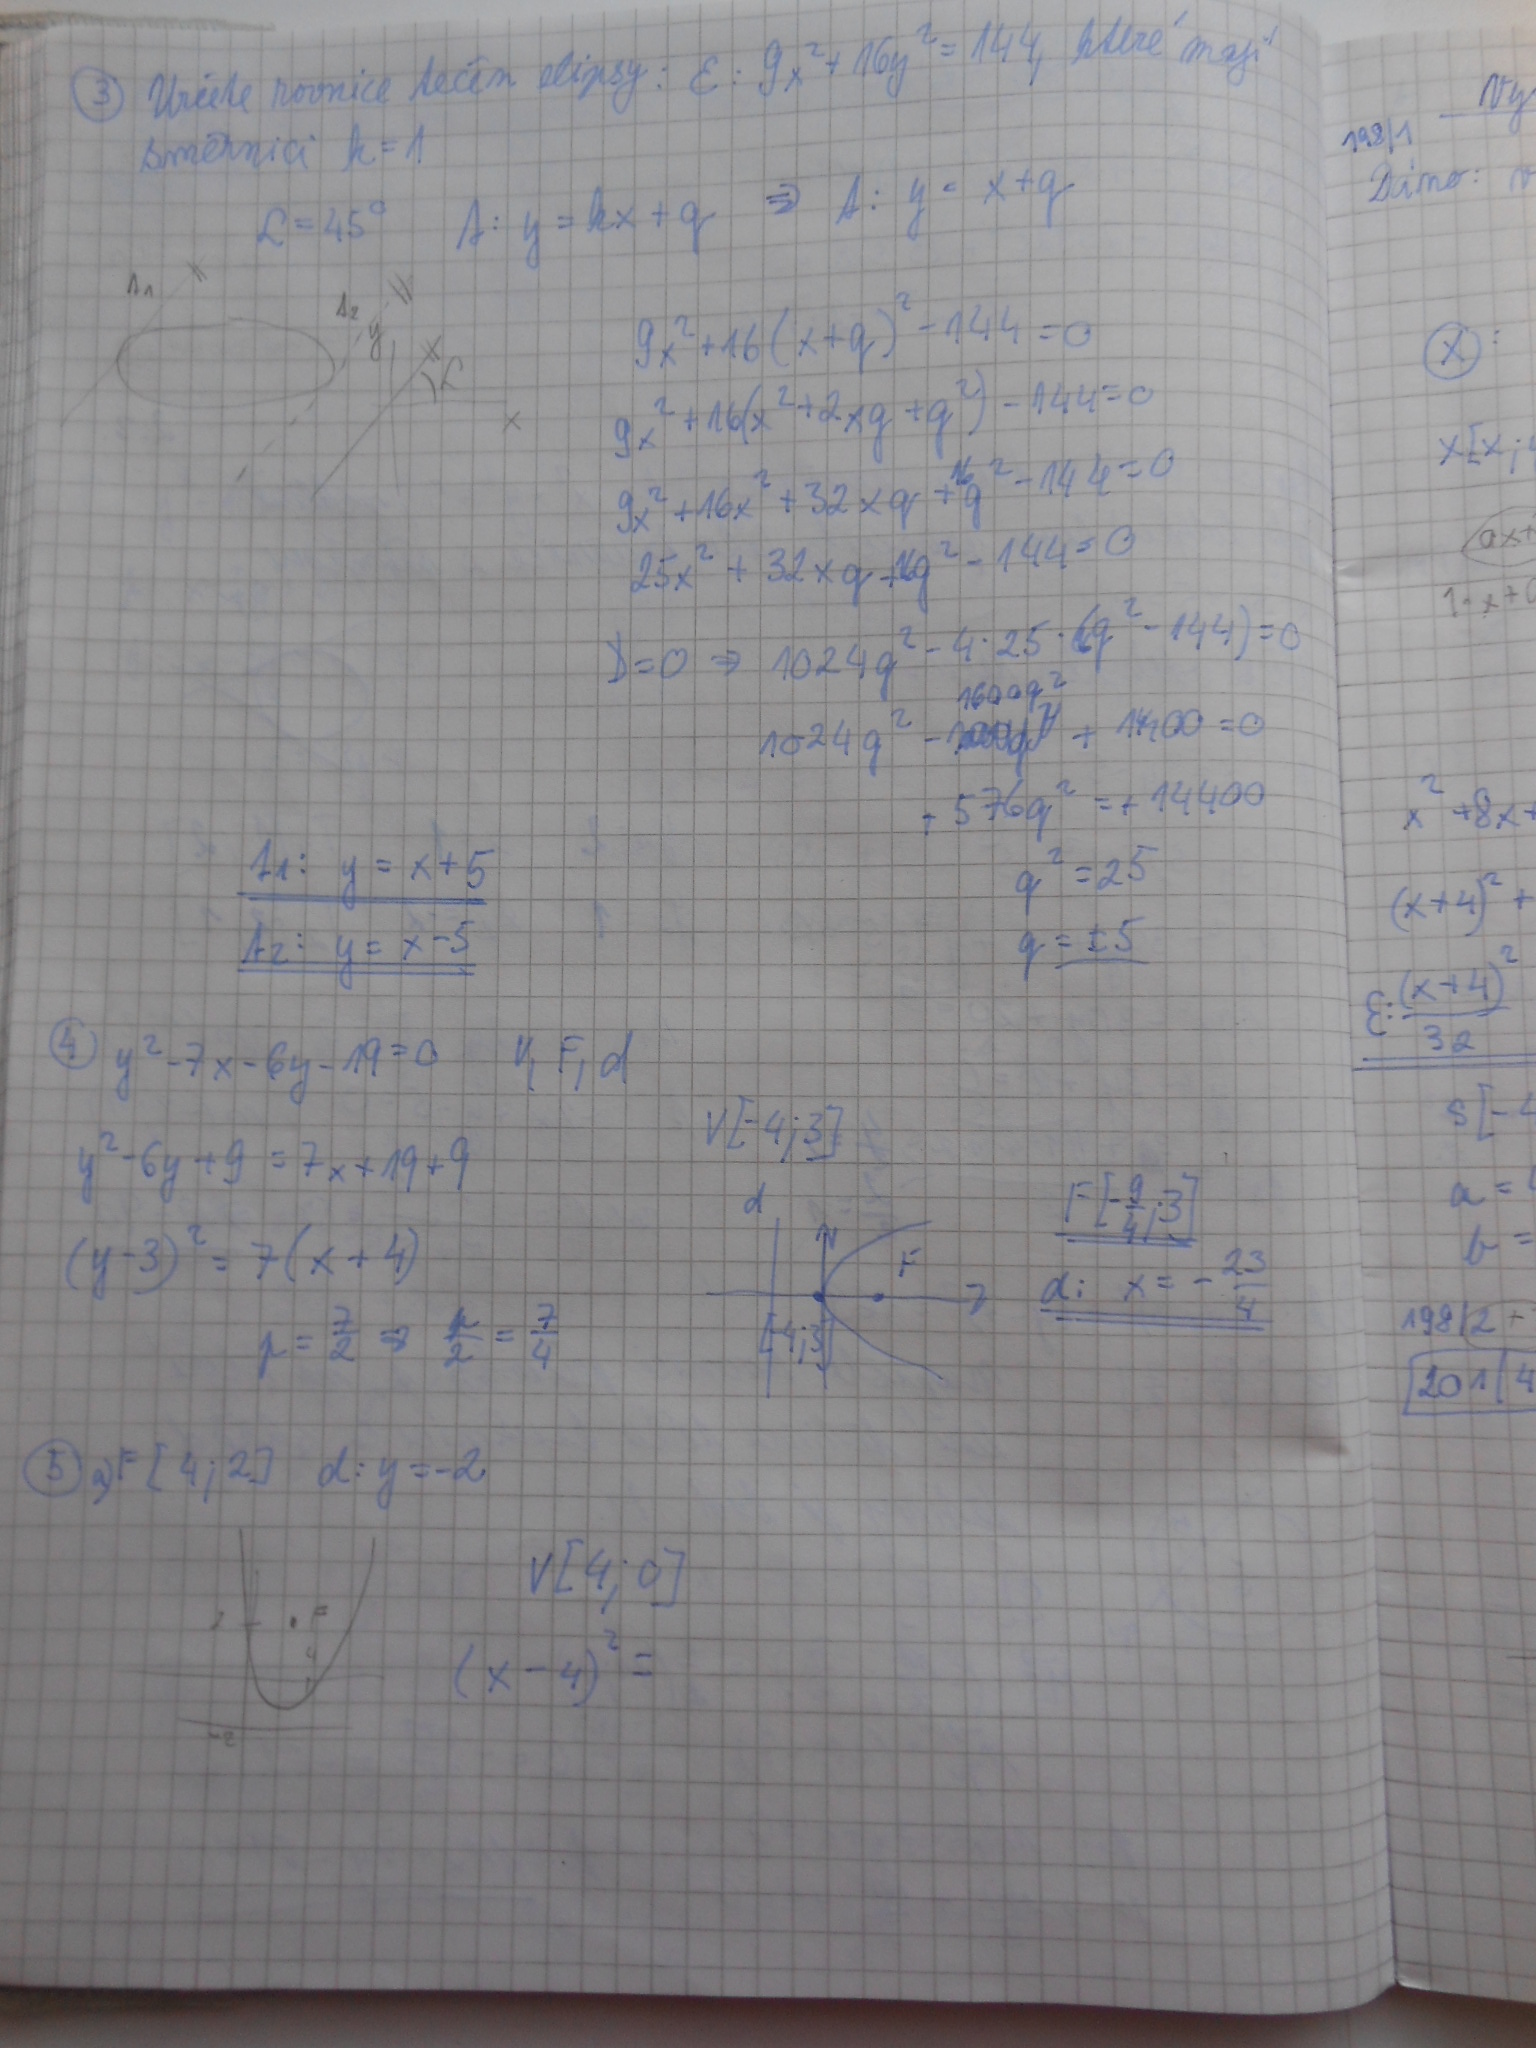 ③ Určete rovnice tečen elipsy: E: 9x² + 16y² = 144, které mají
směrnici k = 1
α = 45° t: y = kx + q ⇒ t: y = x + q
t₁
t₂
y
α
x
9x² + 16(x + q)² - 144 = 0
9x² + 16(x² + 2xq + q²) - 144 = 0
9x² + 16x² + 32xq + 16q² - 144 = 0
25x² + 32xq + 16q² - 144 = 0
D = 0 ⇒ 1024q² - 4·25·(16q² - 144) = 0
1600q²
1024q² - + 14400 = 0
- 576q² = - 14400
q² = 25
q = ±5
t₁: y = x + 5
t₂: y = x - 5
④ y² - 7x - 6y - 19 = 0 V, F, d
y² - 6y + 9 = 7x + 19 + 9
(y - 3)² = 7(x + 4)
p = 7/2 ⇒ p/2 = 7/4
V[-4; 3]
d
F
[-4; 3]
F[-9/4; 3]
d: x = -23/4
⑤ a) F[4; 2] d: y = -2
F
4
-2
V[4; 0]
(x - 4)² =
198/1
Dáno:
(X):
X[x;
ax+
1·x+
x² + 8x +
(x+4)² +
E: (x+4)²/32
S[-4
a =
b =
198/2 +
201/4